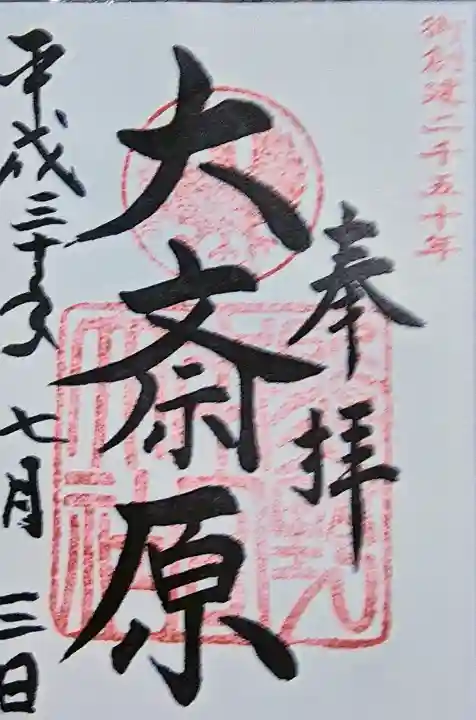 御創建二千五十年
奉拝
大斎原
平成三十年七月三日